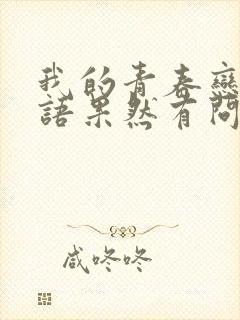 我的青春戀
語果然有問
咸咚咚